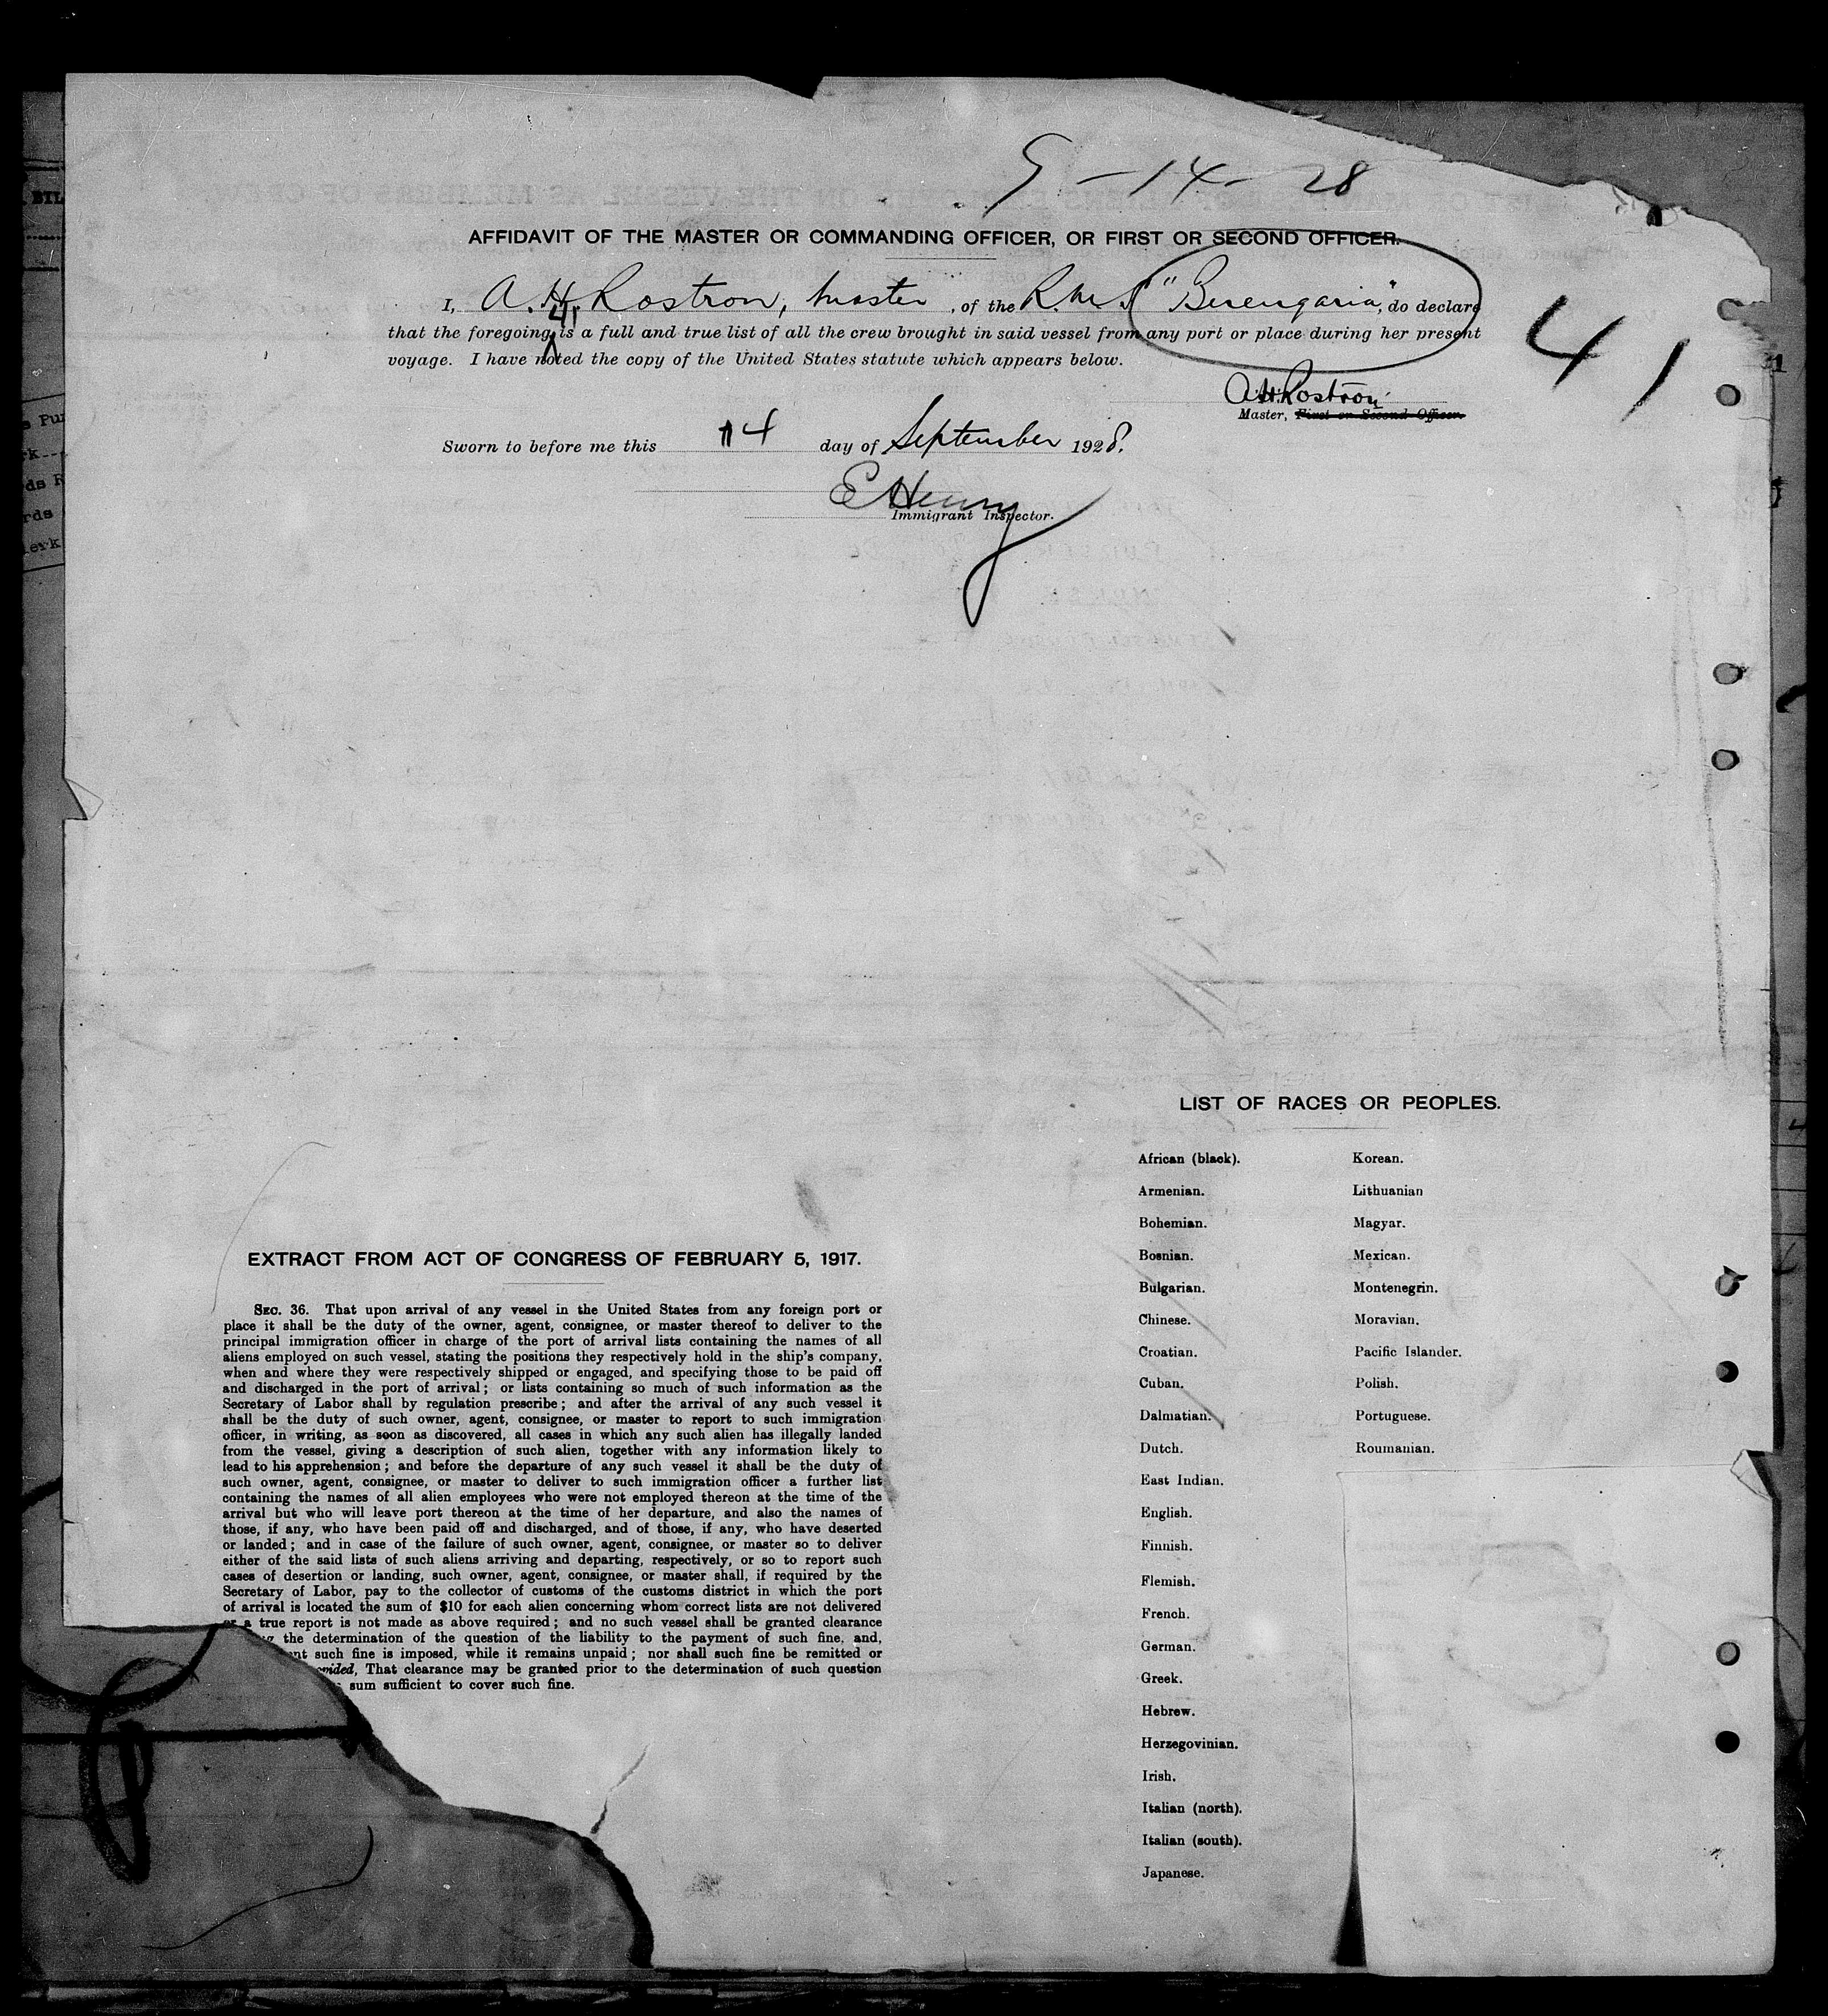 9-14-28
AFFIDAVIT OF THE MASTER OR COMMANDING OFFICER, OR FIRST OR SECOND OFFICER.
I, A. H. Rostron, Master, of the R.M.S. "Berengaria", do declare
41
that the foregoing is a full and true list of all the crew brought in said vessel from any port or place during her present
voyage. I have noted the copy of the United States statute which appears below.
41
A.H. Rostron
Master, First or Second Officer.
Sworn to before me this 14 day of September 1928.
E Henry
Immigrant Inspector.
LIST OF RACES OR PEOPLES.
African (black). Korean.
Armenian. Lithuanian
Bohemian. Magyar.
Bosnian. Mexican.
Bulgarian. Montenegrin.
Chinese. Moravian.
Croatian. Pacific Islander.
Cuban. Polish.
Dalmatian. Portuguese.
Dutch. Roumanian.
East Indian.
English.
Finnish.
Flemish.
French.
German.
Greek.
Hebrew.
Herzegovinian.
Irish.
Italian (north).
Italian (south).
Japanese.
EXTRACT FROM ACT OF CONGRESS OF FEBRUARY 5, 1917.
SEC. 36. That upon arrival of any vessel in the United States from any foreign port or
place it shall be the duty of the owner, agent, consignee, or master thereof to deliver to the
principal immigration officer in charge of the port of arrival lists containing the names of all
aliens employed on such vessel, stating the positions they respectively hold in the ship's company,
when and where they were respectively shipped or engaged, and specifying those to be paid off
and discharged in the port of arrival; or lists containing so much of such information as the
Secretary of Labor shall by regulation prescribe; and after the arrival of any such vessel it
shall be the duty of such owner, agent, consignee, or master to report to such immigration
officer, in writing, as soon as discovered, all cases in which any such alien has illegally landed
from the vessel, giving a description of such alien, together with any information likely to
lead to his apprehension; and before the departure of any such vessel it shall be the duty of
such owner, agent, consignee, or master to deliver to such immigration officer a further list
containing the names of all alien employees who were not employed thereon at the time of the
arrival but who will leave port thereon at the time of her departure, and also the names of
those, if any, who have been paid off and discharged, and of those, if any, who have deserted
or landed; and in case of the failure of such owner, agent, consignee, or master so to deliver
either of the said lists of such aliens arriving and departing, respectively, or so to report such
cases of desertion or landing, such owner, agent, consignee, or master shall, if required by the
Secretary of Labor, pay to the collector of customs of the customs district in which the port
of arrival is located the sum of $10 for each alien concerning whom correct lists are not delivered
or a true report is not made as above required; and no such vessel shall be granted clearance
the determination of the question of the liability to the payment of such fine, and,
such fine is imposed, while it remains unpaid; nor shall such fine be remitted or
That clearance may be granted prior to the determination of such question
sum sufficient to cover such fine.